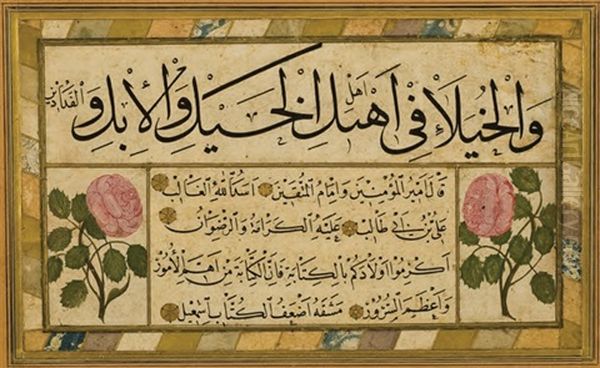 والخيلاء في اهل الخيل والابل و الفدادين
اهل
قال امير المؤمنين وامام المتقين اسد الله الغالب
علي بن ابي طالب عليه الكرامة والرضوان
اكرموا اولادكم بالكتابة فان الكتابة من اهم الامور
واعظم السرور مشقه اضعف الكتاب اسمعيل